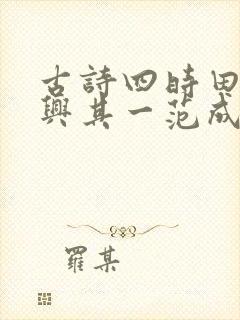 古詩四時田
興其一范成
羅某